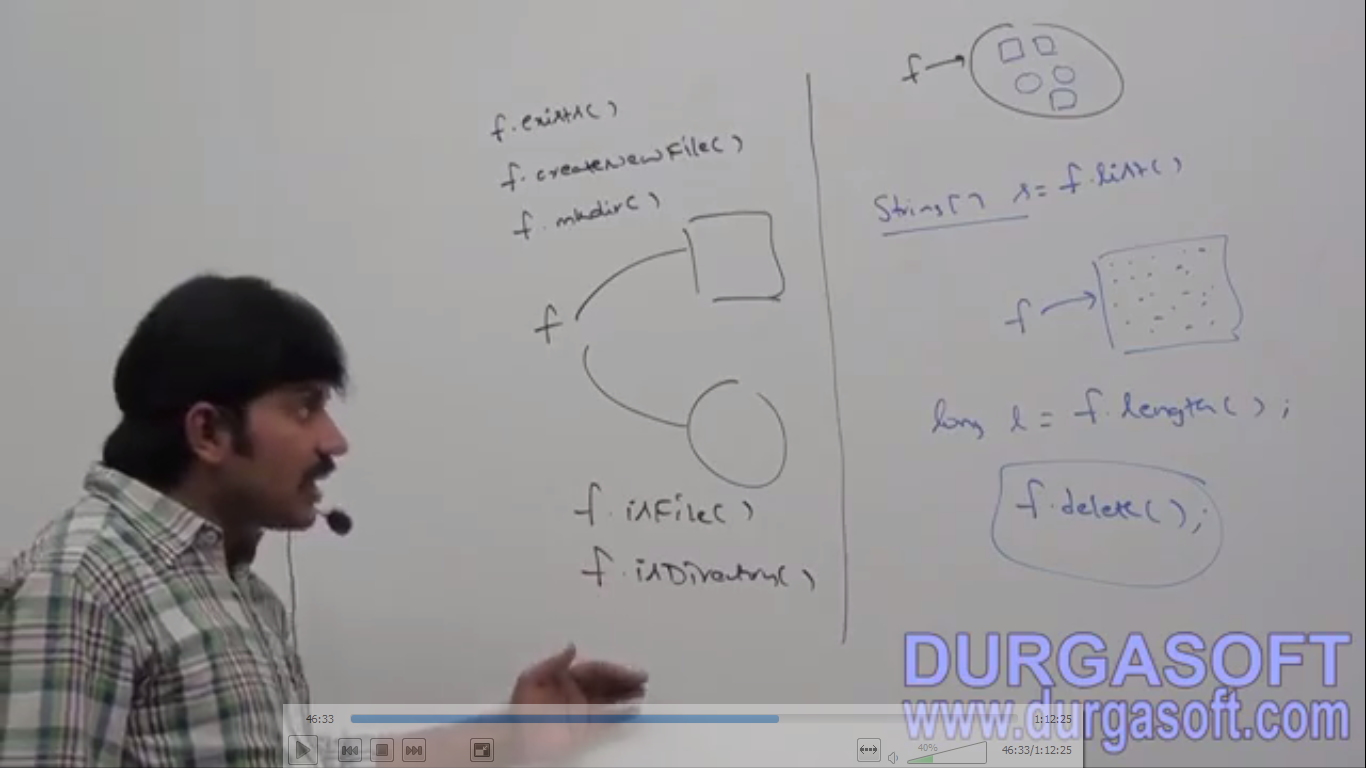 f.exists()
f.createNewFile()
f.mkdir()
f
f.isFile()
f.isDirectory()
f
String[] s = f.list()
f
long l = f.length();
f.delete();
DURGASOFT
www.durgasoft.com
46:33
1:12:25
40%
46:33/1:12:25